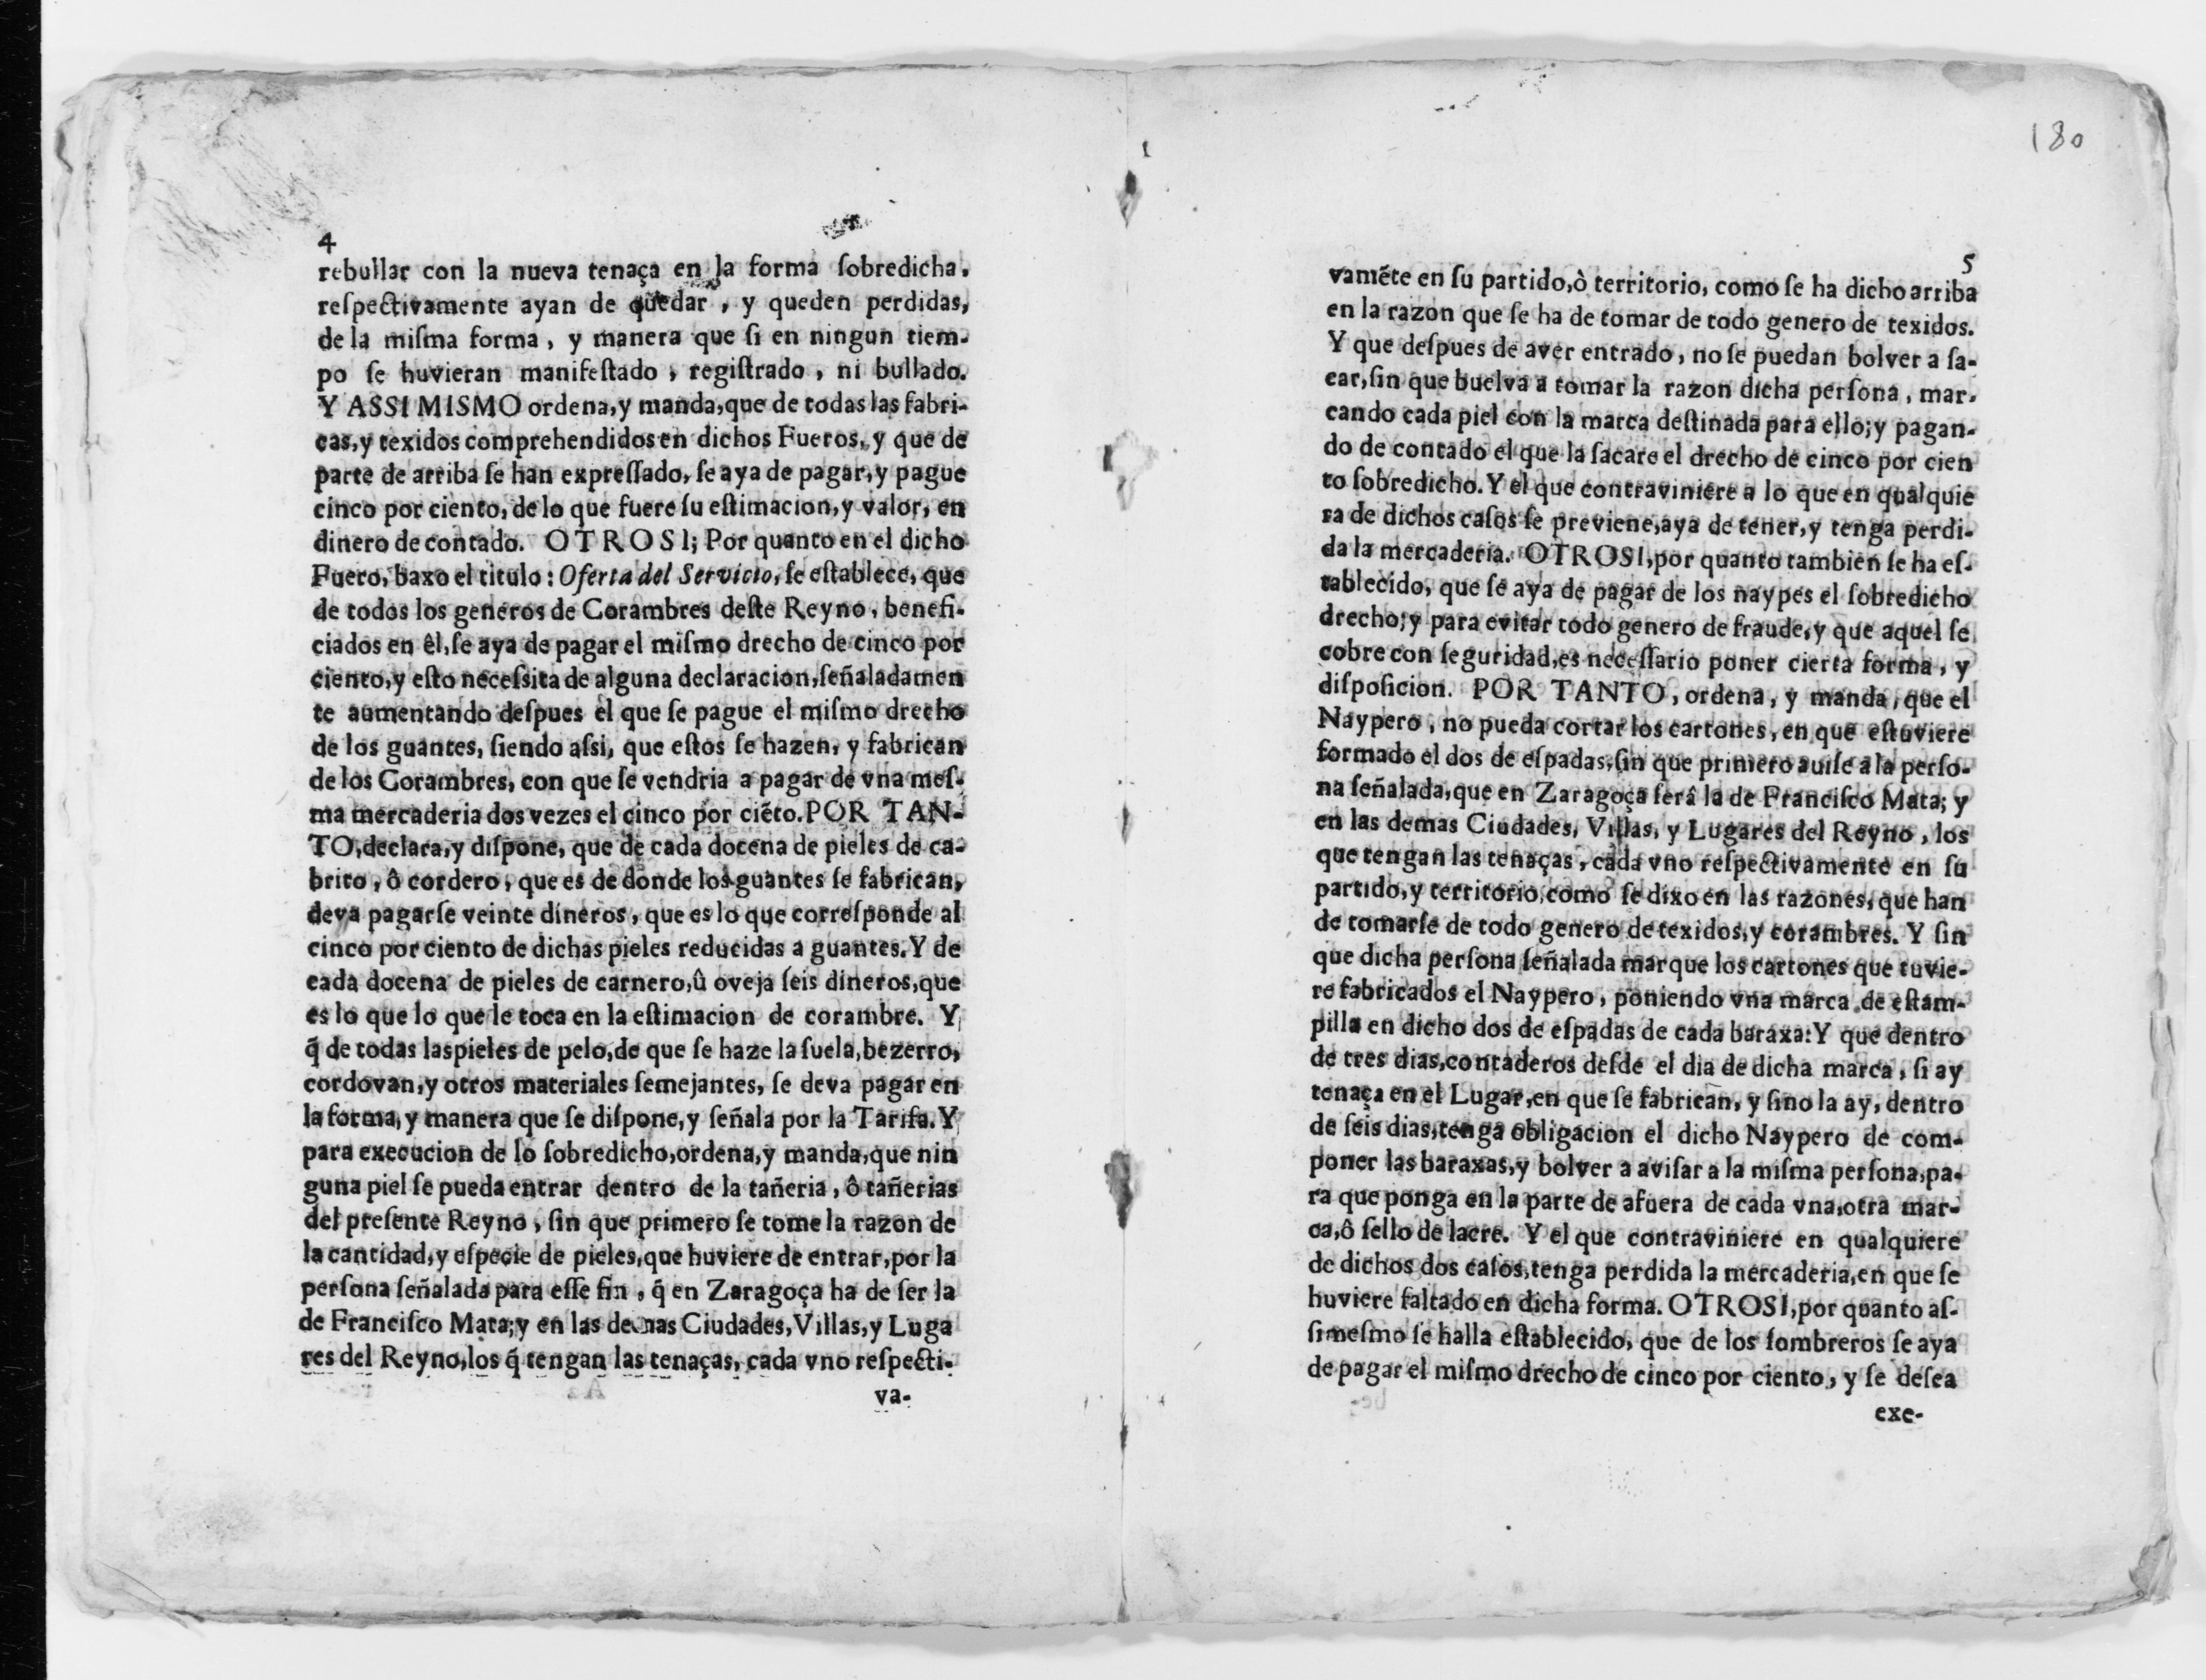 4
rebullar con la nueva tenaça en la forma ſobredicha,
reſpectivamente ayan de quedar, y queden perdidas,
de la miſma forma, y manera que ſi en ningun tiem-
po ſe huvieran manifeſtado, regiſtrado, ni bullado.
Y ASSI MISMO ordena,y manda,que de todas las fabri-
cas,y texidos comprehendidos en dichos Fueros, y que de
parte de arriba ſe han expreſſado, ſe aya de pagar,y pague
cinco por ciento, de lo que fuere ſu eſtimacion,y valor, en
dinero de contado. OTROSI; Por quanto en el dicho
Fuero, baxo el titulo: Oferta del Servicio, ſe eſtablece, que
de todos los generos de Corambres deſte Reyno, benefi-
ciados en êl,ſe aya de pagar el miſmo drecho de cinco por
ciento,y eſto neceſsita de alguna declaracion,ſeñaladamen
te aumentando deſpues el que ſe pague el miſmo drecho
de los guantes, ſiendo aſsi, que eſtos ſe hazen, y fabrican
de los Corambres, con que ſe vendria a pagar de vna meſ-
ma mercaderia dos vezes el cinco por ciẽto. POR TAN-
TO,declara,y diſpone, que de cada docena de pieles de ca-
brito, ô cordero, que es de donde los guantes ſe fabrican,
deva pagarſe veinte dineros, que es lo que correſponde al
cinco por ciento de dichas pieles reducidas a guantes. Y de
cada docena de pieles de carnero,û oveja ſeis dineros,que
es lo que lo que le toca en la eſtimacion de corambre. Y
q̃ de todas laspieles de pelo,de que ſe haze la ſuela,bezerro,
cordovan,y otros materiales ſemejantes, ſe deva pagar en
la forma,y manera que ſe diſpone,y ſeñala por la Tarifa. Y
para execucion de lo ſobredicho,ordena,y manda,que nin
guna piel ſe pueda entrar dentro de la tañeria, ô tañerias
del preſente Reyno, ſin que primero ſe tome la razon de
la cantidad,y eſpecie de pieles,que huviere de entrar,por la
perſona ſeñalada para eſſe fin, q̃ en Zaragoça ha de ſer la
de Franciſco Mata;y en las demas Ciudades,Villas,y Luga
res del Reyno,los q̃ tengan las tenaças, cada vno reſpecti-
va-
180
5
vamẽte en ſu partido,ò territorio, como ſe ha dicho arriba
en la razon que ſe ha de tomar de todo genero de texidos.
Y que deſpues de aver entrado, no ſe puedan bolver a ſa-
car,ſin que buelva a tomar la razon dicha perſona, mar-
cando cada piel con la marca deſtinada para ello;y pagan-
do de contado el que la ſacare el drecho de cinco por cien
to ſobredicho. Y el que contraviniere a lo que en qualquie
ra de dichos caſos ſe previene,aya de tener,y tenga perdi-
da la mercaderia. OTROSI,por quanto tambien ſe ha eſ-
tablecido, que ſe aya de pagar de los naypes el ſobredicho
drecho;y para evitar todo genero de fraude,y que aquel ſe
cobre con ſeguridad,es neceſſario poner cierta forma, y
diſpoſicion. POR TANTO, ordena, y manda, que el
Naypero, no pueda cortar los cartones, en que eſtuviere
formado el dos de eſpadas,ſin que primero auiſe a la perſo-
na ſeñalada,que en Zaragoça ſerâ la de Franciſco Mata; y
en las demas Ciudades, Villas, y Lugares del Reyno, los
que tengan las tenaças, cada vno reſpectivamente en ſu
partido,y territorio,como ſe dixo en las razones, que han
de tomarſe de todo genero de texidos,y corambres. Y ſin
que dicha perſona ſeñalada marque los cartones que tuvie-
re fabricados el Naypero, poniendo vna marca de eſtam-
pilla en dicho dos de eſpadas de cada baraxa:Y que dentro
de tres dias,contaderos deſde el dia de dicha marca, ſi ay
tenaça en el Lugar,en que ſe fabrican, y ſino la ay, dentro
de ſeis dias,tenga obligacion el dicho Naypero de com-
poner las baraxas,y bolver a aviſar a la miſma perſona,pa-
ra que ponga en la parte de afuera de cada vna,otra mar-
ca,ô ſello de lacre. Y el que contraviniere en qualquiere
de dichos dos caſos,tenga perdida la mercaderia,en que ſe
huviere faltado en dicha forma. OTROSI,por quanto aſ-
ſimeſmo ſe halla eſtablecido, que de los ſombreros ſe aya
de pagar el miſmo drecho de cinco por ciento, y ſe deſea
exe-